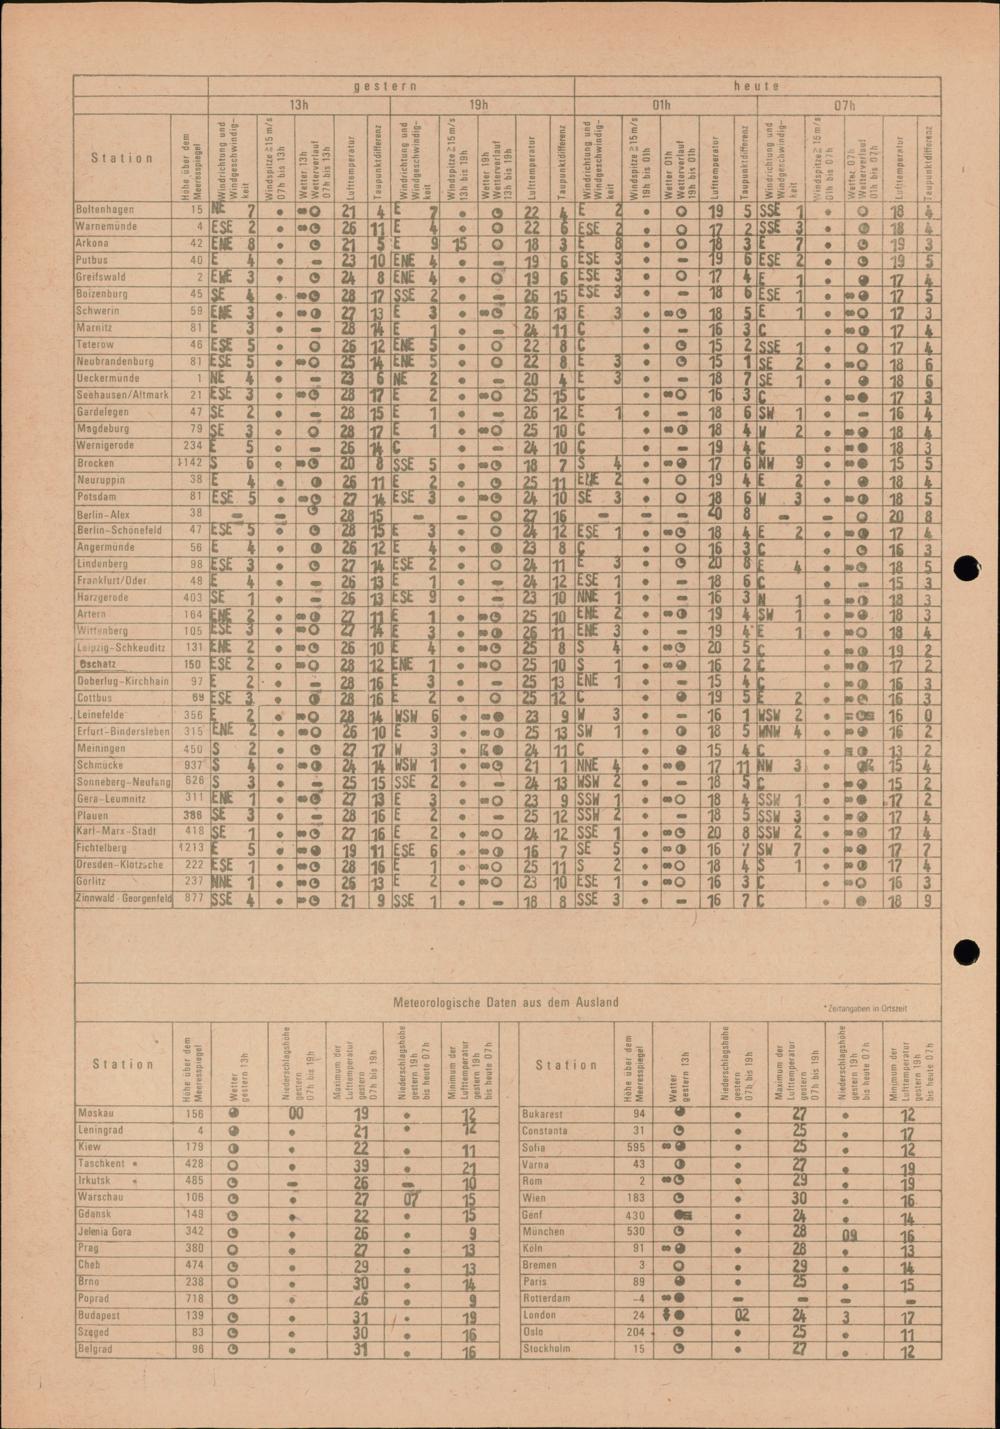 gestern heute
13h 19h 01h 07h
Station
Höhe über dem Meeresspiegel
Windrichtung und Windgeschwindigkeit
Windspitze ≧15 m/s 07h bis 13h
Wetter 13h Wetterverlauf 07h bis 13h
Lufttemperatur
Taupunktdifferenz
Windrichtung und Windgeschwindigkeit
Windspitze ≧15 m/s 13h bis 19h
Wetter 19h Wetterverlauf 13h bis 19h
Lufttemperatur
Taupunktdifferenz
Windrichtung und Windgeschwindigkeit
Windspitze ≧15 m/s 19h bis 01h
Wetter 01h Wetterverlauf 19h bis 01h
Lufttemperatur
Taupunktdifferenz
Windrichtung und Windgeschwindigkeit
Windspitze ≧15 m/s 01h bis 07h
Wetter 07h Wetterverlauf 01h bis 07h
Lufttemperatur
Taupunktdifferenz
Boltenhagen 15 NE 7 21 4 E 7 22 4 E 2 19 5 SSE 1 18 4
Warnemünde 4 ESE 2 26 11 E 4 22 6 ESE 2 17 2 SSE 3 18 4
Arkona 42 ENE 8 21 5 E 9 15 18 3 E 8 18 3 E 7 19 3
Putbus 40 E 4 – 23 10 ENE 4 – 19 6 ESE 3 – 19 6 ESE 2 19 5
Greifswald 2 ENE 3 24 8 ENE 4 19 6 ESE 3 17 4 E 1 17 4
Boizenburg 45 SE 4 28 17 SSE 2 – 26 15 ESE 3 – 18 6 ESE 1 17 5
Schwerin 59 ENE 3 27 13 E 3 26 13 E 3 18 5 E 1 17 3
Marnitz 81 E 3 – 28 14 E 1 – 24 11 C – 16 3 C 17 4
Teterow 46 ESE 5 26 12 ENE 5 22 8 C 15 2 SSE 1 17 4
Neubrandenburg 81 ESE 5 25 14 ENE 5 22 8 E 3 15 1 SE 2 18 6
Ueckermünde 1 NE 4 – 23 6 NE 2 – 20 4 E 3 – 18 7 SE 1 18 6
Seehausen/Altmark 21 ESE 3 28 17 E 2 25 15 C 16 3 C 17 3
Gardelegen 47 SE 2 – 28 15 E 1 – 26 12 E 1 – 18 6 SW 1 – 16 4
Magdeburg 79 SE 3 28 17 E 1 25 10 C 18 4 W 2 18 4
Wernigerode 234 E 5 – 26 14 C – 24 10 C – 19 4 C 18 3
Brocken 1142 S 6 20 8 SSE 5 18 7 S 4 17 6 NW 9 15 5
Neuruppin 38 E 4 26 11 E 2 25 11 ENE 2 19 4 E 2 18 4
Potsdam 81 ESE 5 27 14 ESE 3 24 10 SE 3 18 6 W 3 18 5
Berlin-Alex 38 – – 28 15 – – 27 16 – – – 20 8 – – 20 8
Berlin-Schönefeld 47 ESE 5 28 15 E 3 24 12 ESE 1 18 4 E 2 17 4
Angermünde 56 E 4 26 12 E 4 23 8 C 16 3 C 16 3
Lindenberg 98 ESE 3 27 14 ESE 2 24 11 E 3 20 8 E 4 18 5
Frankfurt/Oder 48 E 4 – 26 13 E 1 – 24 12 ESE 1 – 18 6 C – 15 3
Harzgerode 403 SE 1 – 26 13 ESE 9 – 23 10 NNE 1 – 16 3 N 1 18 3
Artern 164 ENE 2 27 11 E 1 25 10 ENE 2 19 4 SW 1 18 3
Wittenberg 105 ESE 3 27 14 E 3 26 11 ENE 3 – 19 4 E 1 18 4
Leipzig-Schkeuditz 131 ENE 2 26 10 E 4 25 8 S 4 20 5 C 19 2
Oschatz 150 ESE 2 28 12 ENE 1 25 10 S 1 16 2 C 17 2
Doberlug-Kirchhain 97 E 2 – 28 16 E 3 – 25 13 ENE 1 – 15 4 C 16 3
Cottbus 69 ESE 3 28 16 E 2 25 12 C 19 5 E 2 16 3
Leinefelde 356 E 2 28 14 WSW 6 23 9 W 3 – 16 1 WSW 2 16 0
Erfurt-Bindersleben 315 ENE 2 26 10 E 3 25 13 SW 1 18 5 WNW 4 16 2
Meiningen 450 S 2 27 17 W 3 24 11 C 15 4 C 13 2
Schmücke 937 S 4 24 14 WSW 1 21 1 NNE 4 17 11 NW 3 15 4
Sonneberg-Neufang 626 S 3 – 25 15 SSE 2 – 24 13 WSW 2 – 18 5 C 15 2
Gera-Leumnitz 311 ENE 1 27 13 E 3 23 9 SSW 1 18 4 SSW 1 17 2
Plauen 386 SE 3 – 28 16 E 2 – 25 12 SSW 2 – 18 5 SSW 3 17 4
Karl-Marx-Stadt 418 SE 1 27 16 E 2 24 12 SSE 1 20 8 SSW 2 17 4
Fichtelberg 1213 E 5 19 11 ESE 6 16 7 SE 5 16 7 SW 7 17 7
Dresden-Klotzsche 222 ESE 1 28 16 E 1 25 11 S 2 18 4 S 1 17 4
Görlitz 237 NNE 1 26 13 E 2 23 10 ESE 1 16 3 C 16 3
Zinnwald-Georgenfeld 877 SSE 4 21 9 SSE 1 – 18 8 SSE 3 – 16 7 C 18 9
Meteorologische Daten aus dem Ausland
*Zeitangaben in Ortszeit
Station
Höhe über dem Meeresspiegel
Wetter gestern 13h
Niederschlagshöhe gestern 07h bis 19h
Maximum der Lufttemperatur gestern 07h bis 19h
Niederschlagshöhe gestern 19h bis heute 07h
Minimum der Lufttemperatur gestern 19h bis heute 07h
Moskau 156 00 19 12
Leningrad 4 21 12
Kiew 179 22 11
Taschkent * 428 39 21
Irkutsk * 485 – 26 – 10
Warschau 106 27 07 15
Gdansk 149 22 15
Jelenia Gora 342 26 9
Prag 380 27 13
Cheb 474 29 13
Brno 238 30 14
Poprad 718 26 9
Budapest 139 31 19
Szeged 83 30 16
Belgrad 96 31 16
Station
Höhe über dem Meeresspiegel
Wetter gestern 13h
Niederschlagshöhe gestern 07h bis 19h
Maximum der Lufttemperatur gestern 07h bis 19h
Niederschlagshöhe gestern 19h bis heute 07h
Minimum der Lufttemperatur gestern 19h bis heute 07h
Bukarest 94 27 12
Constanta 31 25 17
Sofia 595 25 12
Varna 43 27 19
Rom 2 29 19
Wien 183 30 16
Genf 430 24 14
München 530 28 09 16
Köln 91 28 13
Bremen 3 29 14
Paris 89 25 15
Rotterdam -4 – – – –
London 24 02 24 3 17
Oslo 204 25 11
Stockholm 15 27 12